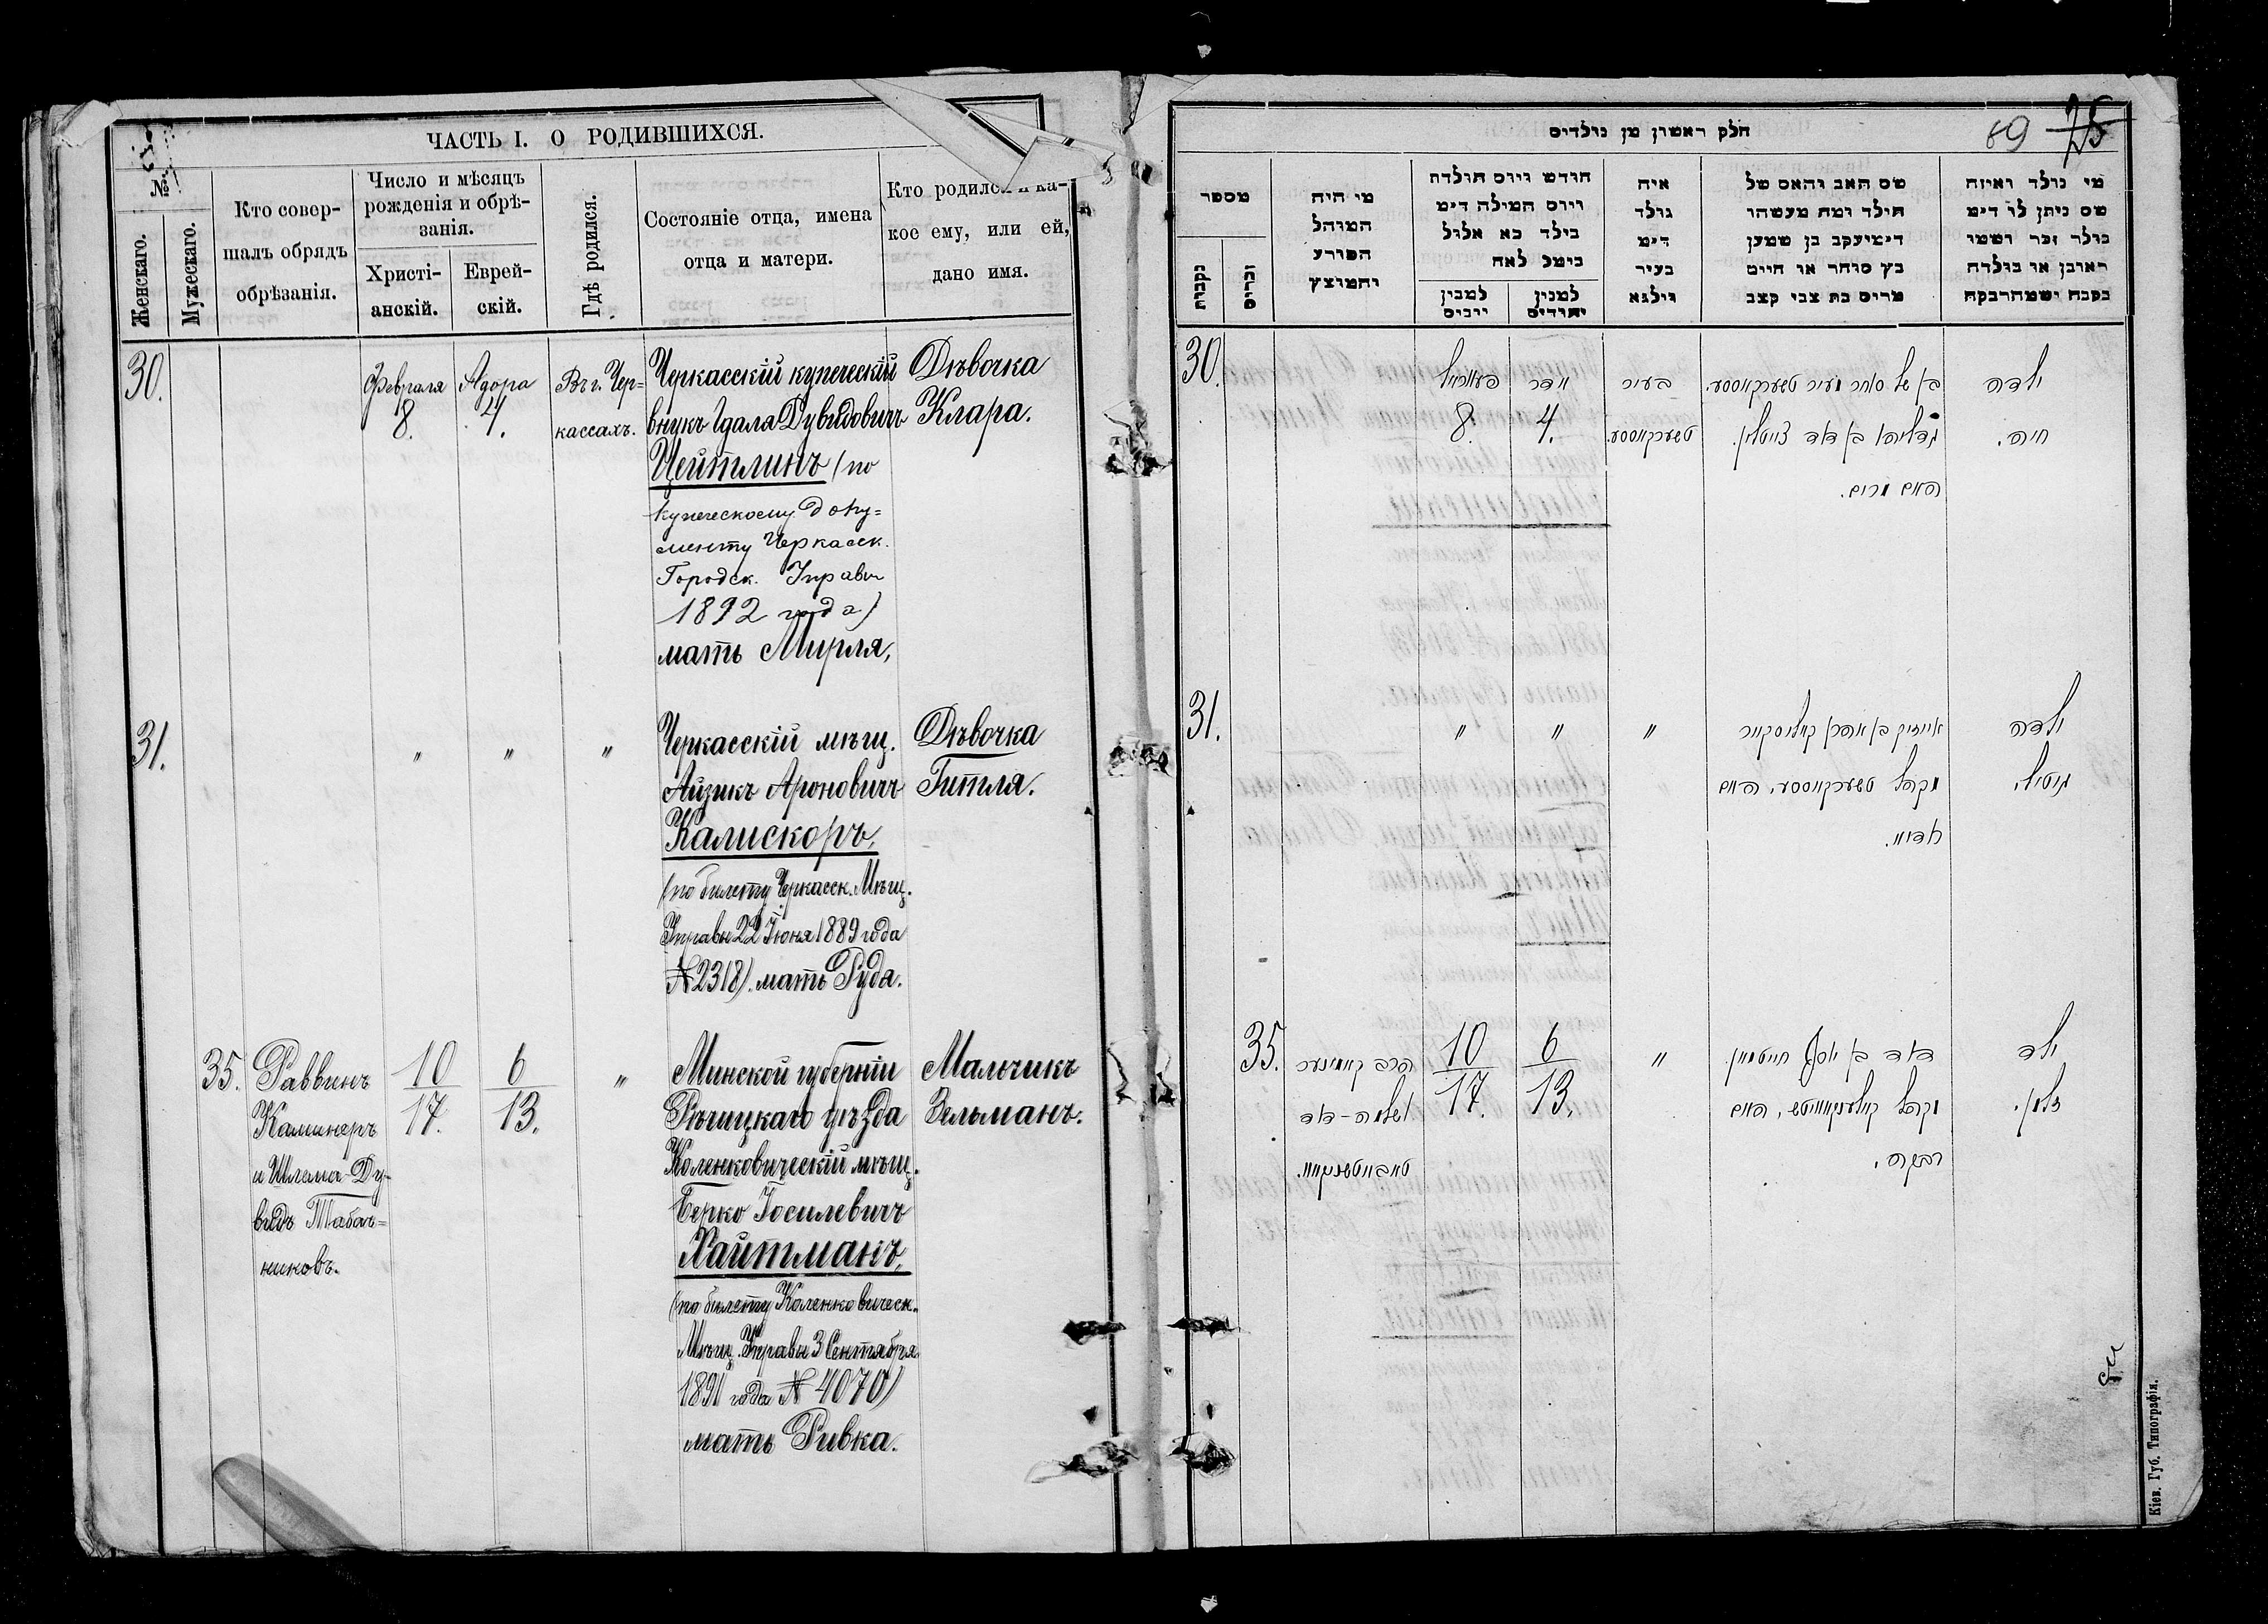 ЧАСТЬ I. О РОДИВШИХСЯ.
№
Женскаго.
Мужескаго.
Кто совер-
шалъ обрядъ
обрѣзанія.
Число и мѣсяцъ
рожденія и обрѣ-
занія.
Христі-
анскій.
Еврей-
скій.
Гдѣ родился.
Состояніе отца, имена
отца и матери.
Кто родился и ка-
кое ему, или ей,
дано имя.
30.
Февраля
8.
Адора
4.
Въ г. Чер-
кассахъ.
Черкасскій купеческій
внукъ Гдаля Дувидовичъ
Цейтлинъ (по
купеческому доку-
менту Черкасск.
Городск. Управы
1892 года)
мать Мирля,
Дѣвочка
Клара.
31.
"
"
"
Черкасскій мѣщ.
Айзикъ Ароновичъ
Калискоръ,
(по билету Черкасск. Мѣщ.
Управы 22 Іюня 1889 года
№ 2318). мать Руда.
Дѣвочка
Гитля.
35.
Раввинъ
Каминеръ
и Шлема-Ду-
видъ Табач-
никовъ.
10
17.
6
13.
"
Минской губерніи
Рѣчицкаго уѣзда
Коленковическій мѣщ.
Берко Іосилевичъ
Хайтманъ,
(по билету Коленковическ.
Мѣщ. Управы 3 Сентября
1891 года № 4070)
мать Ривка.
Мальчикъ
Зельманъ.
חלק ראשון מן נולדים
69 75
מספר
נקבות
זכרים
מי היה
המוהל
הפורע
והמוצץ
חודש ויום תולדה
ויום המילה דימ
בילד כא אלול
בימל לאה
למנין
יוונים
למנין
יהודים
איה
נולד
דימ
בעיר
ווילנא
שם האב והאם של
הילד ומה מעשהו
דימיעקב בן שמען
כץ סוחר או חיים
מרים בת צבי קצב
מי נולד ואיזה
שם ניתן לו דימ
נולד זכר ושמו
ראובן או נולדה
נקבה ושמה רבקה
30.
פעברויאל
8.
אדר
4.
בעיר
טשערקאססע.
בן של סוחר מעיר טשערקאססע.
גדליהו בן דוד צייטלין.
האם מרים.
ילדה
חיה.
31.
"
"
"
אייזיק בן אהרן קאליסקאר
מקהל טשערקאססע, האם
ראדיע.
ילדה
גיטל.
35.
הרב קאמינער
ושלמה-דוד
טאבאטשניקאוו.
10
17.
6
13.
"
דוב בן יוסף חייטמאן
מקהל קאלענקאוויטש, האם
רבקה.
ילד
זלמן.
Кіев. Губ. Типографія.